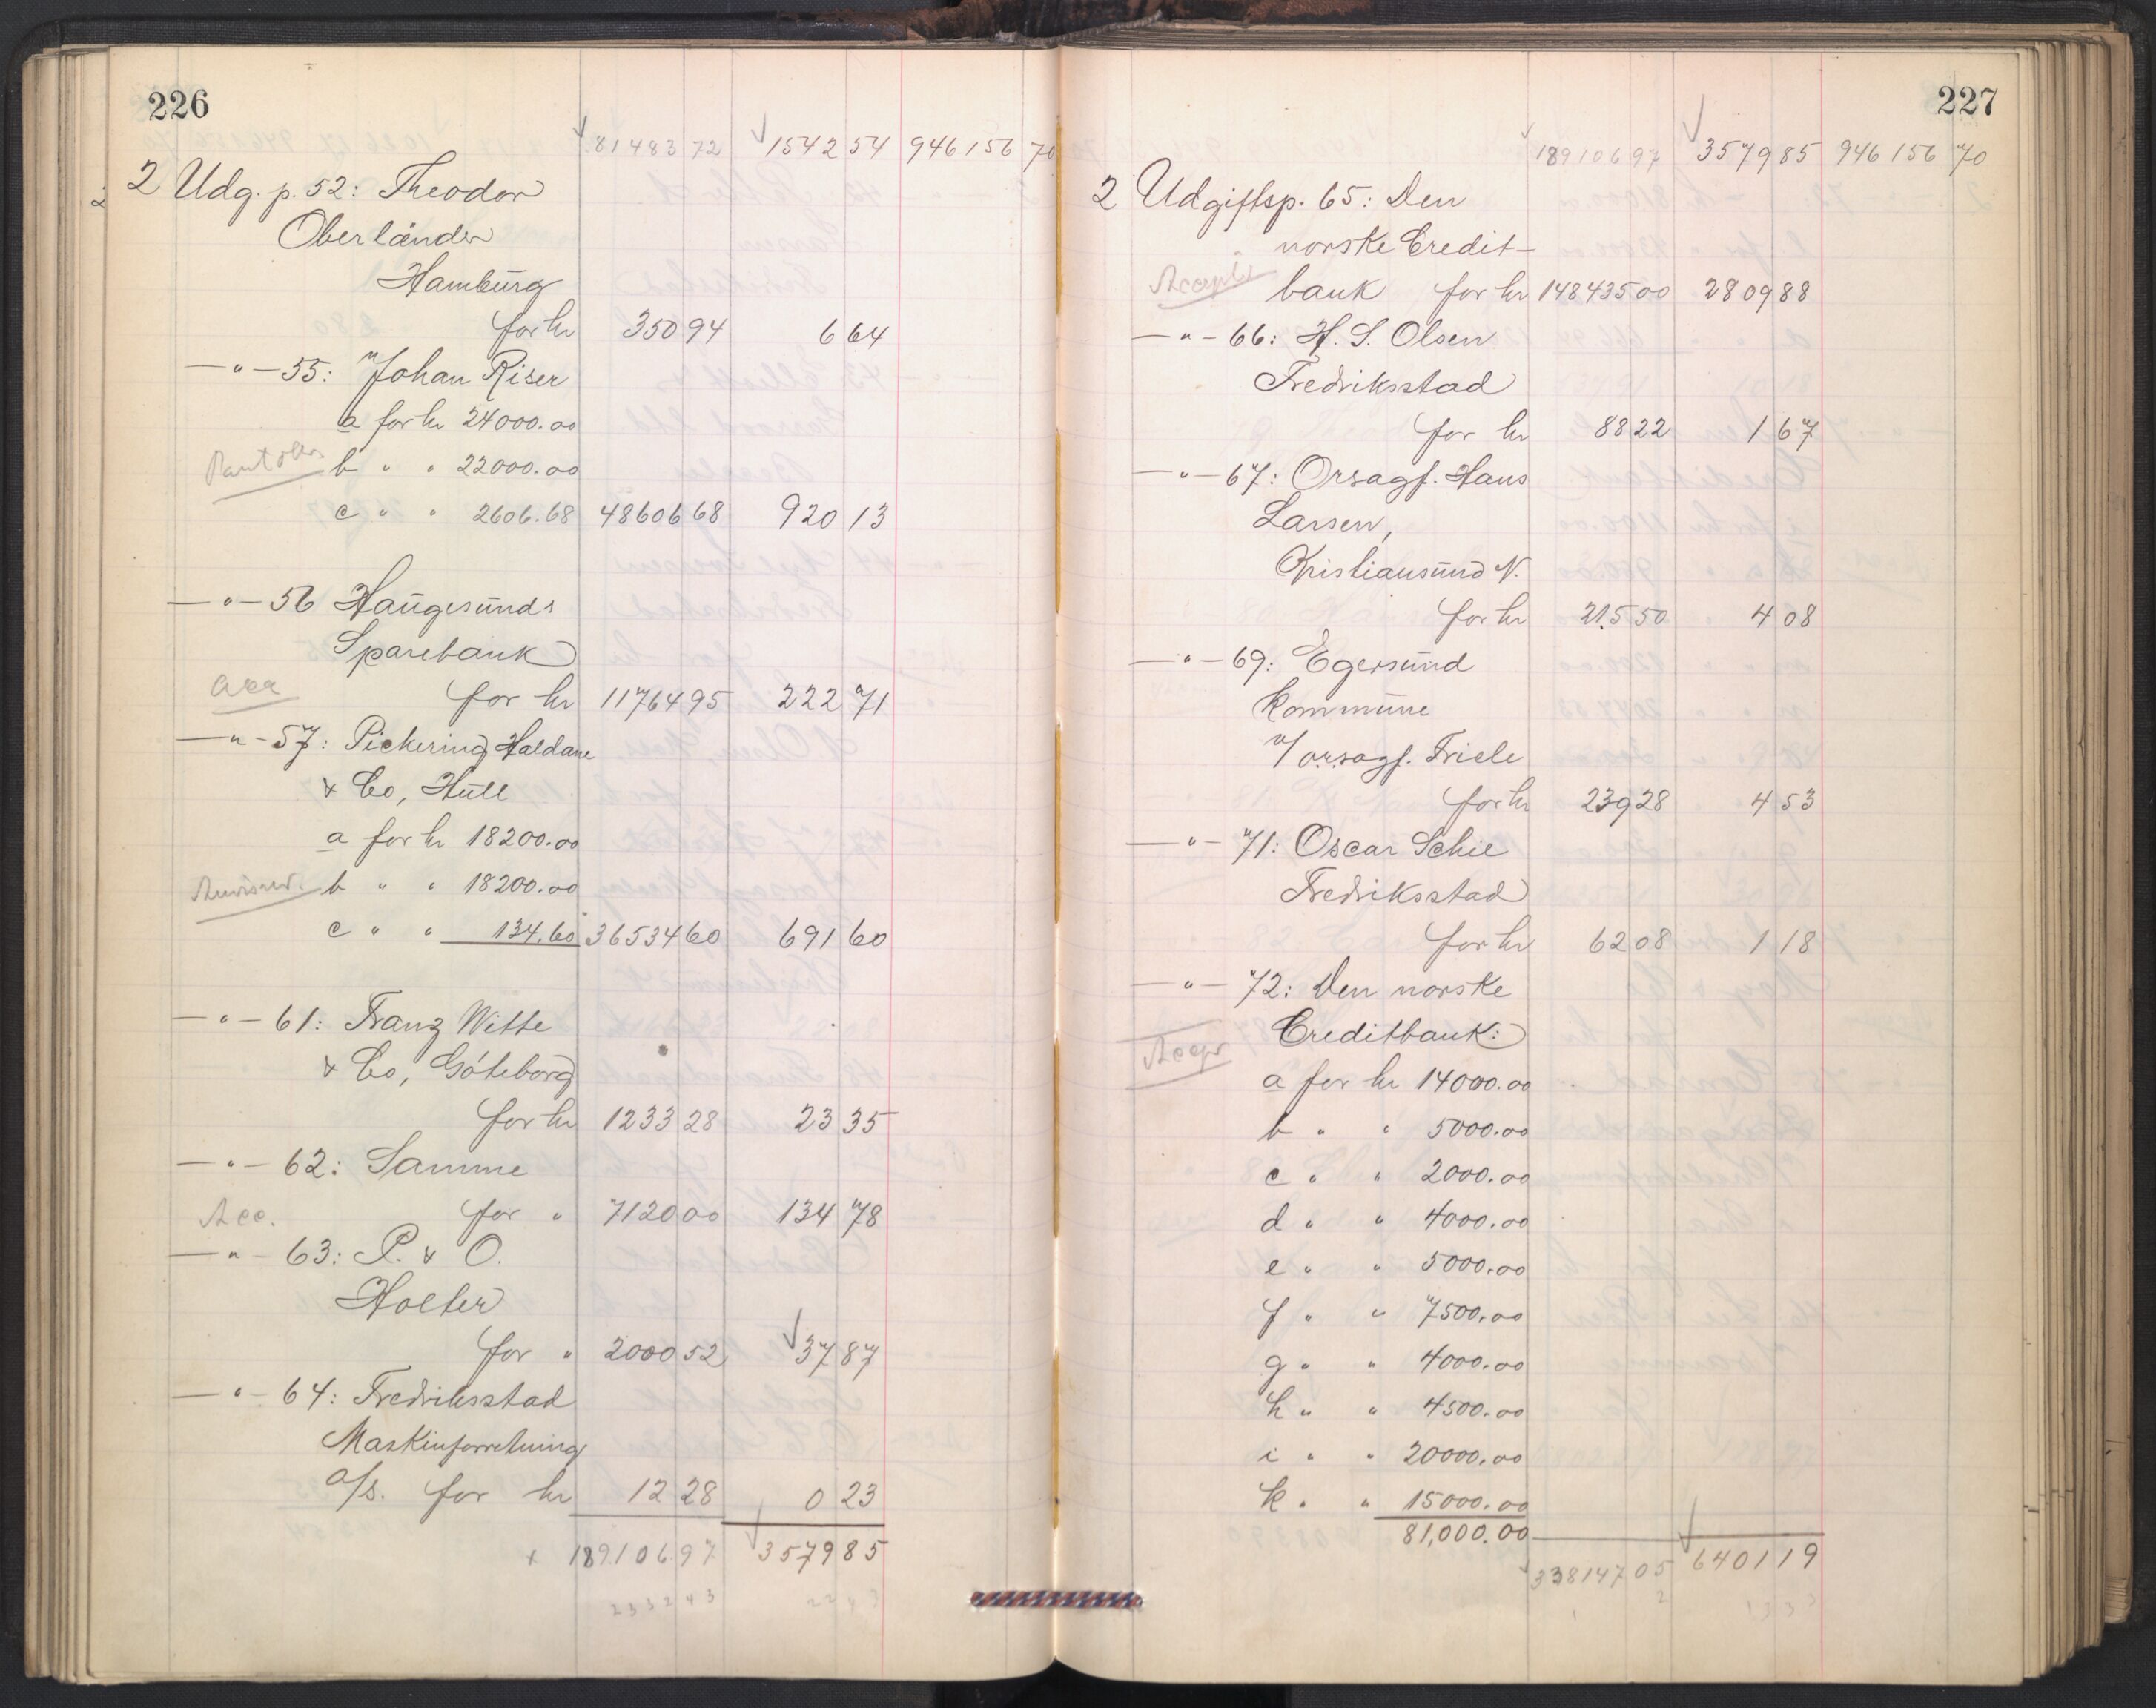 226
81483 72 1542 54 946156 70
2 Udg. p. 52: Theodor
Oberländer
Hamburg
for kr 350 94 6 64
—"— 55: Johan Riser
a for kr 24000.00
Pantobl. b " " 22000.00
c " " 2606.68 48606 68 920 13
—"— 56 Haugesunds
Sparebank
for kr 11764 95 222 71
—"— 57: Pickering Haldane
& Co, Hull
a for kr 18200.00
b " " 18200.00
c " " 134.60 36534 60 691 60
—"— 61: Franz Witte
& Co, Göteborg
for kr 1233 28 23 35
—"— 62: Samme
Acc. for " 7120 00 134 78
—"— 63: P. & O.
Holter
for " 2000 52 37 87
—"— 64: Fredriksstad
Maskinforretning
a/s. for kr 12 28 0 23
189106 97 3579 85
233243 2243
227
189106 97 3579 85 946156 70
2 Udgiftsp. 65: Den
norske Credit-
Accepter bank for kr 148435 00 2809 88
—"— 66: H. S. Olsen
Fredriksstad
for kr 88 22 1 67
—"— 67: Orsagf. Hans
Larsen,
Kristiansund N.
for kr 215 50 4 08
—"— 69: Egersund
Kommune
v/ orsagf. Friele
for kr 239 28 4 53
—"— 71: Oscar Schie
Fredriksstad
for kr 62 08 1 18
—"— 72: Den norske
Accept Creditbank:
a for kr 14000.00
b " " 5000.00
c " " 2000.00
d " " 4000.00
e " " 5000.00
f " " 7500.00
g " " 4000.00
h " " 4500.00
i " " 20000.00
k " " 15000.00
81,000.00
338147 05 6401 19
1 2 1333